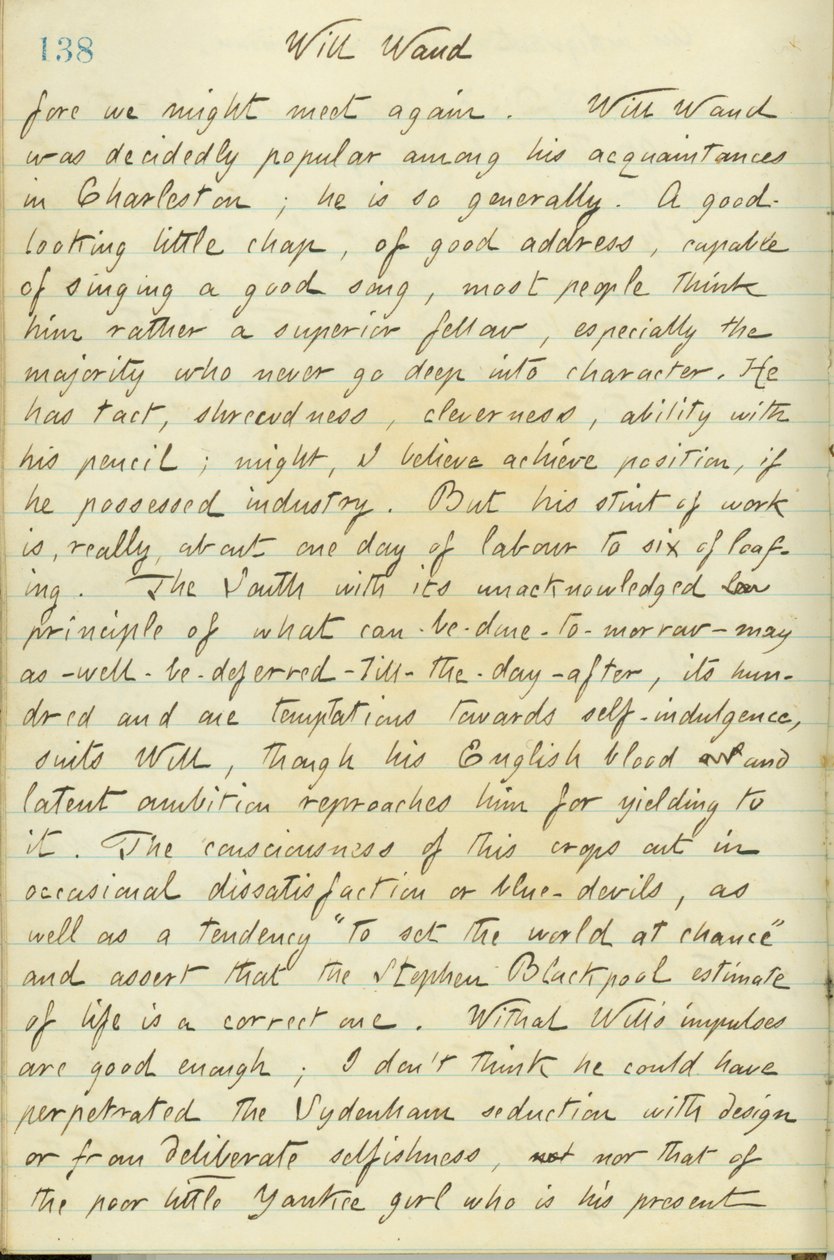 138
Will Waud
fore we might meet again. Will Waud
was decidedly popular among his acquaintances
in Charleston; he is so generally. A good-
looking little chap, of good address, capable
of singing a good song, most people think
him rather a superior fellow, especially the
majority who never go deep into character. He
has tact, shrewdness, cleverness, ability with
his pencil; might, I believe achieve position, if
he possessed industry. But his stint of work
is, really, about one day of labour to six of loaf-
ing. The South with its unacknowledged
principle of what can-be-done-to-morrow-may
as-well-be-deferred-till-the-day-after, its hun-
dred and one temptations towards self-indulgence,
suits Will, though his English blood and
latent ambition reproaches him for yielding to
it. The consciousness of this crops out in
occasional dissatisfaction or blue-devils, as
well as a tendency "to set the world at chance"
and assert that the Stephen Blackpool estimate
of life is a correct one. Withal Will's impulses
are good enough; I don't think he could have
perpetrated the Sydenham seduction with design
or from deliberate selfishness, not nor that of
the poor little Yankee girl who is his present